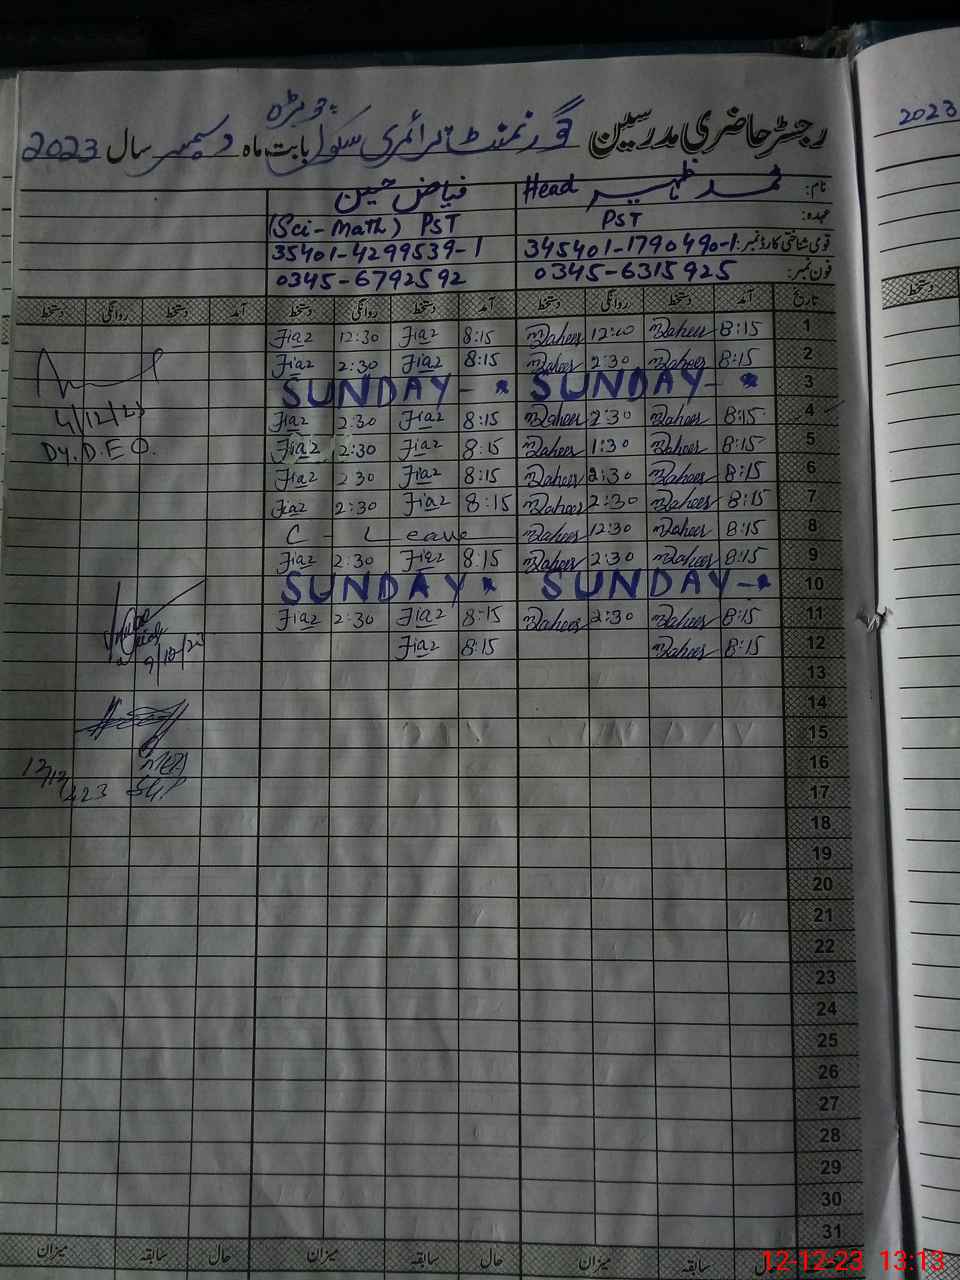 رجسٹر حاضری مدرسین گورنمنٹ پرائمری سکول بابت ماہ دسمبر سال 2023
2023
نام: محمد ظہیر Head فیاض حسین
عہدہ: PST (Sci-Math) PST
قومی شناختی کارڈ نمبر: 345401-1790490-1 35401-4299539-1
فون نمبر: 0345-6315925 0345-6792592
تاریخ آمد دستخط روانگی دستخط آمد دستخط روانگی دستخط آمد دستخط روانگی دستخط
دستخط
1 8:15 Zaheer 12:00 Zaheer 8:15 Fiaz 12:30 Fiaz
2 8:15 Zaheer 2:30 Zaheer 8:15 Fiaz 2:30 Fiaz
3 SUNDAY - * SUNDAY - *
4 8:15 Zaheer 2:30 Zaheer 8:15 Fiaz 2:30 Fiaz
4/12/23
5 8:15 Zaheer 1:30 Zaheer 8:15 Fiaz 2:30 Fiaz
Dy. D.E.O.
6 8:15 Zaheer 2:30 Zaheer 8:15 Fiaz 2 30 Fiaz
7 8:15 Zaheer 2:30 Zaheer 8:15 Fiaz 2:30 Fiaz
8 8:15 Zaheer 12:30 Zaheer C - Leave
9 8:15 Zaheer 2:30 Zaheer 8:15 Fiaz 2:30 Fiaz
10 SUNDAY - * SUNDAY *
11 8:15 Zaheer 2:30 Zaheer 8:15 Fiaz 2:30 Fiaz
12 8:15 Zaheer 8:15 Fiaz
13
14
15
16
17
12/12/23
18
19
20
21
22
23
24
25
26
27
28
29
30
31
حال سابقہ میزان حال سابقہ میزان حال سابقہ میزان
12-12-23 13:13